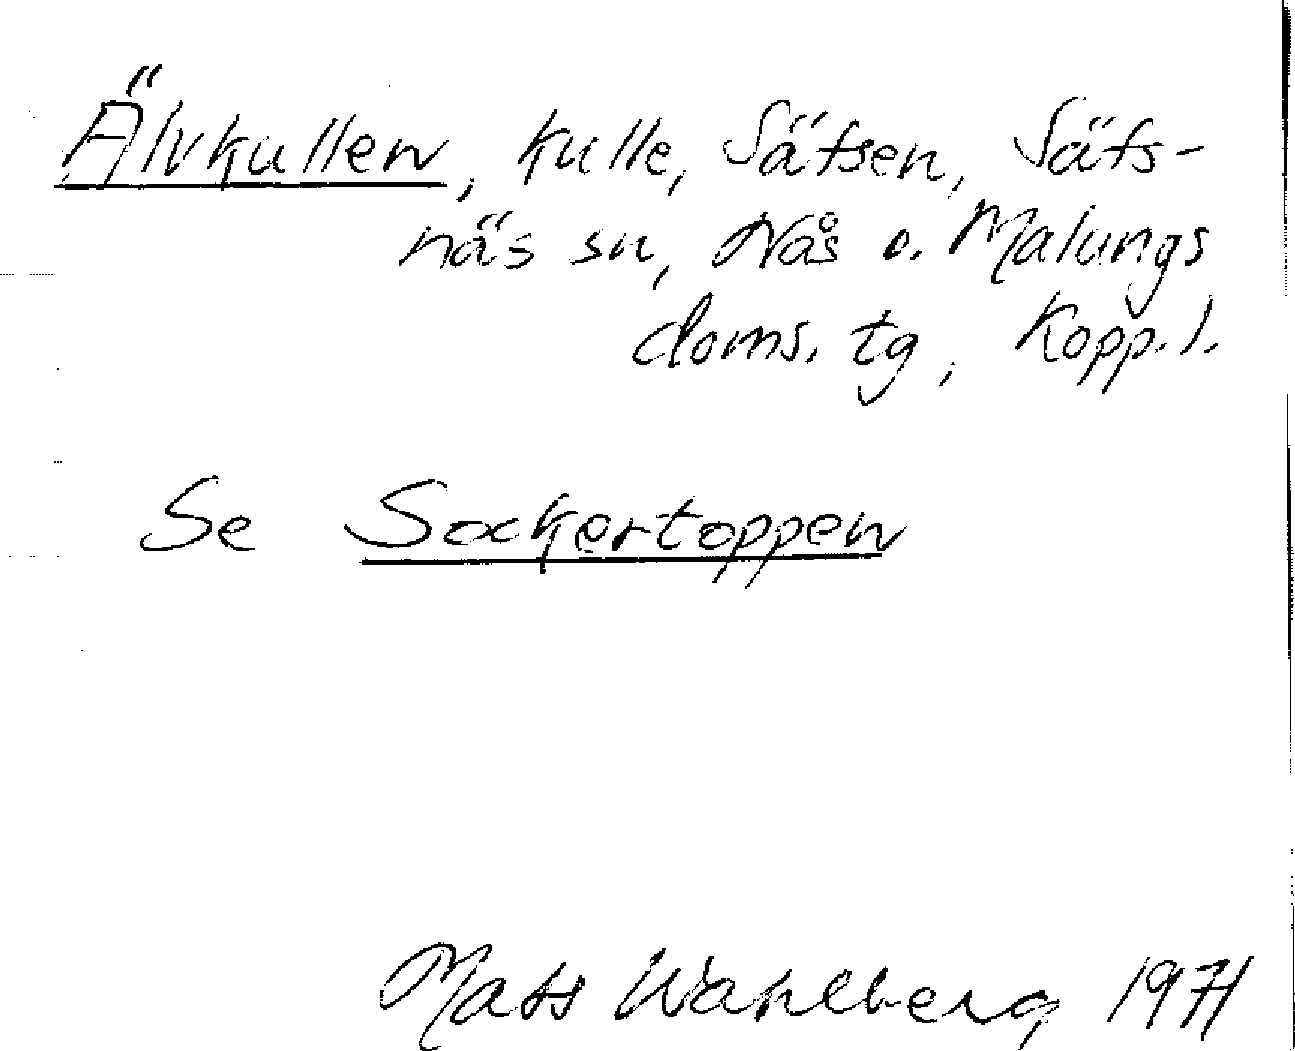 Älvkullen, kulle, Säfsen, Säfs-
näs sn, Nås o. Malungs
doms. tg, Kopp. l.
Se Sockertoppen
Mats Wahlberg 1971